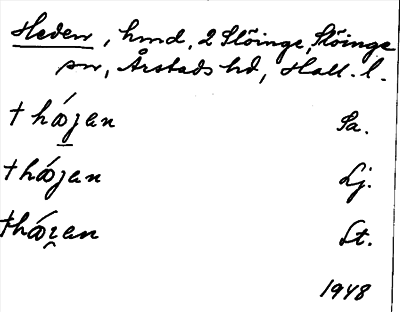 Heden, hmd, 2 Slöinge, Slöinge
sn, Årstads hd, Hall. l.
† hǽjan Sa.
† hǽjan Lj.
† hǽɀan St.
1948